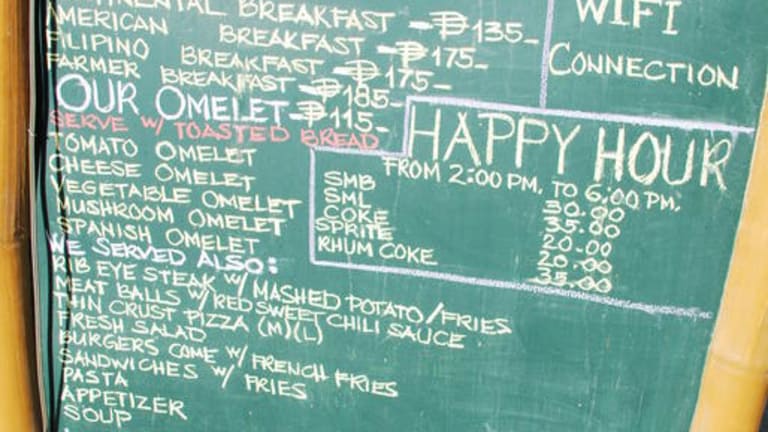 BREAKFAST -₱135-
AMERICAN BREAKFAST -₱175-
FILIPINO BREAKFAST -₱175-
FARMER BREAKFAST -₱185-
OUR OMELET -₱115-
SERVE W/ TOASTED BREAD
TOMATO OMELET
CHEESE OMELET
VEGETABLE OMELET
MUSHROOM OMELET
SPANISH OMELET
WE SERVED ALSO:
RIB EYE STEAK W/ MASHED POTATO/FRIES
MEAT BALLS W/ RED SWEET CHILI SAUCE
THIN CRUST PIZZA (M)(L)
FRESH SALAD
BURGERS COME W/ FRENCH FRIES
SANDWICHES W/ FRIES
PASTA
APPETIZER
SOUP
WIFI
CONNECTION
HAPPY HOUR
FROM 2:00 PM. TO 6:00 PM.
SMB 30.00
SML 35.00
COKE 20.00
SPRITE 20.00
RHUM COKE 35.00